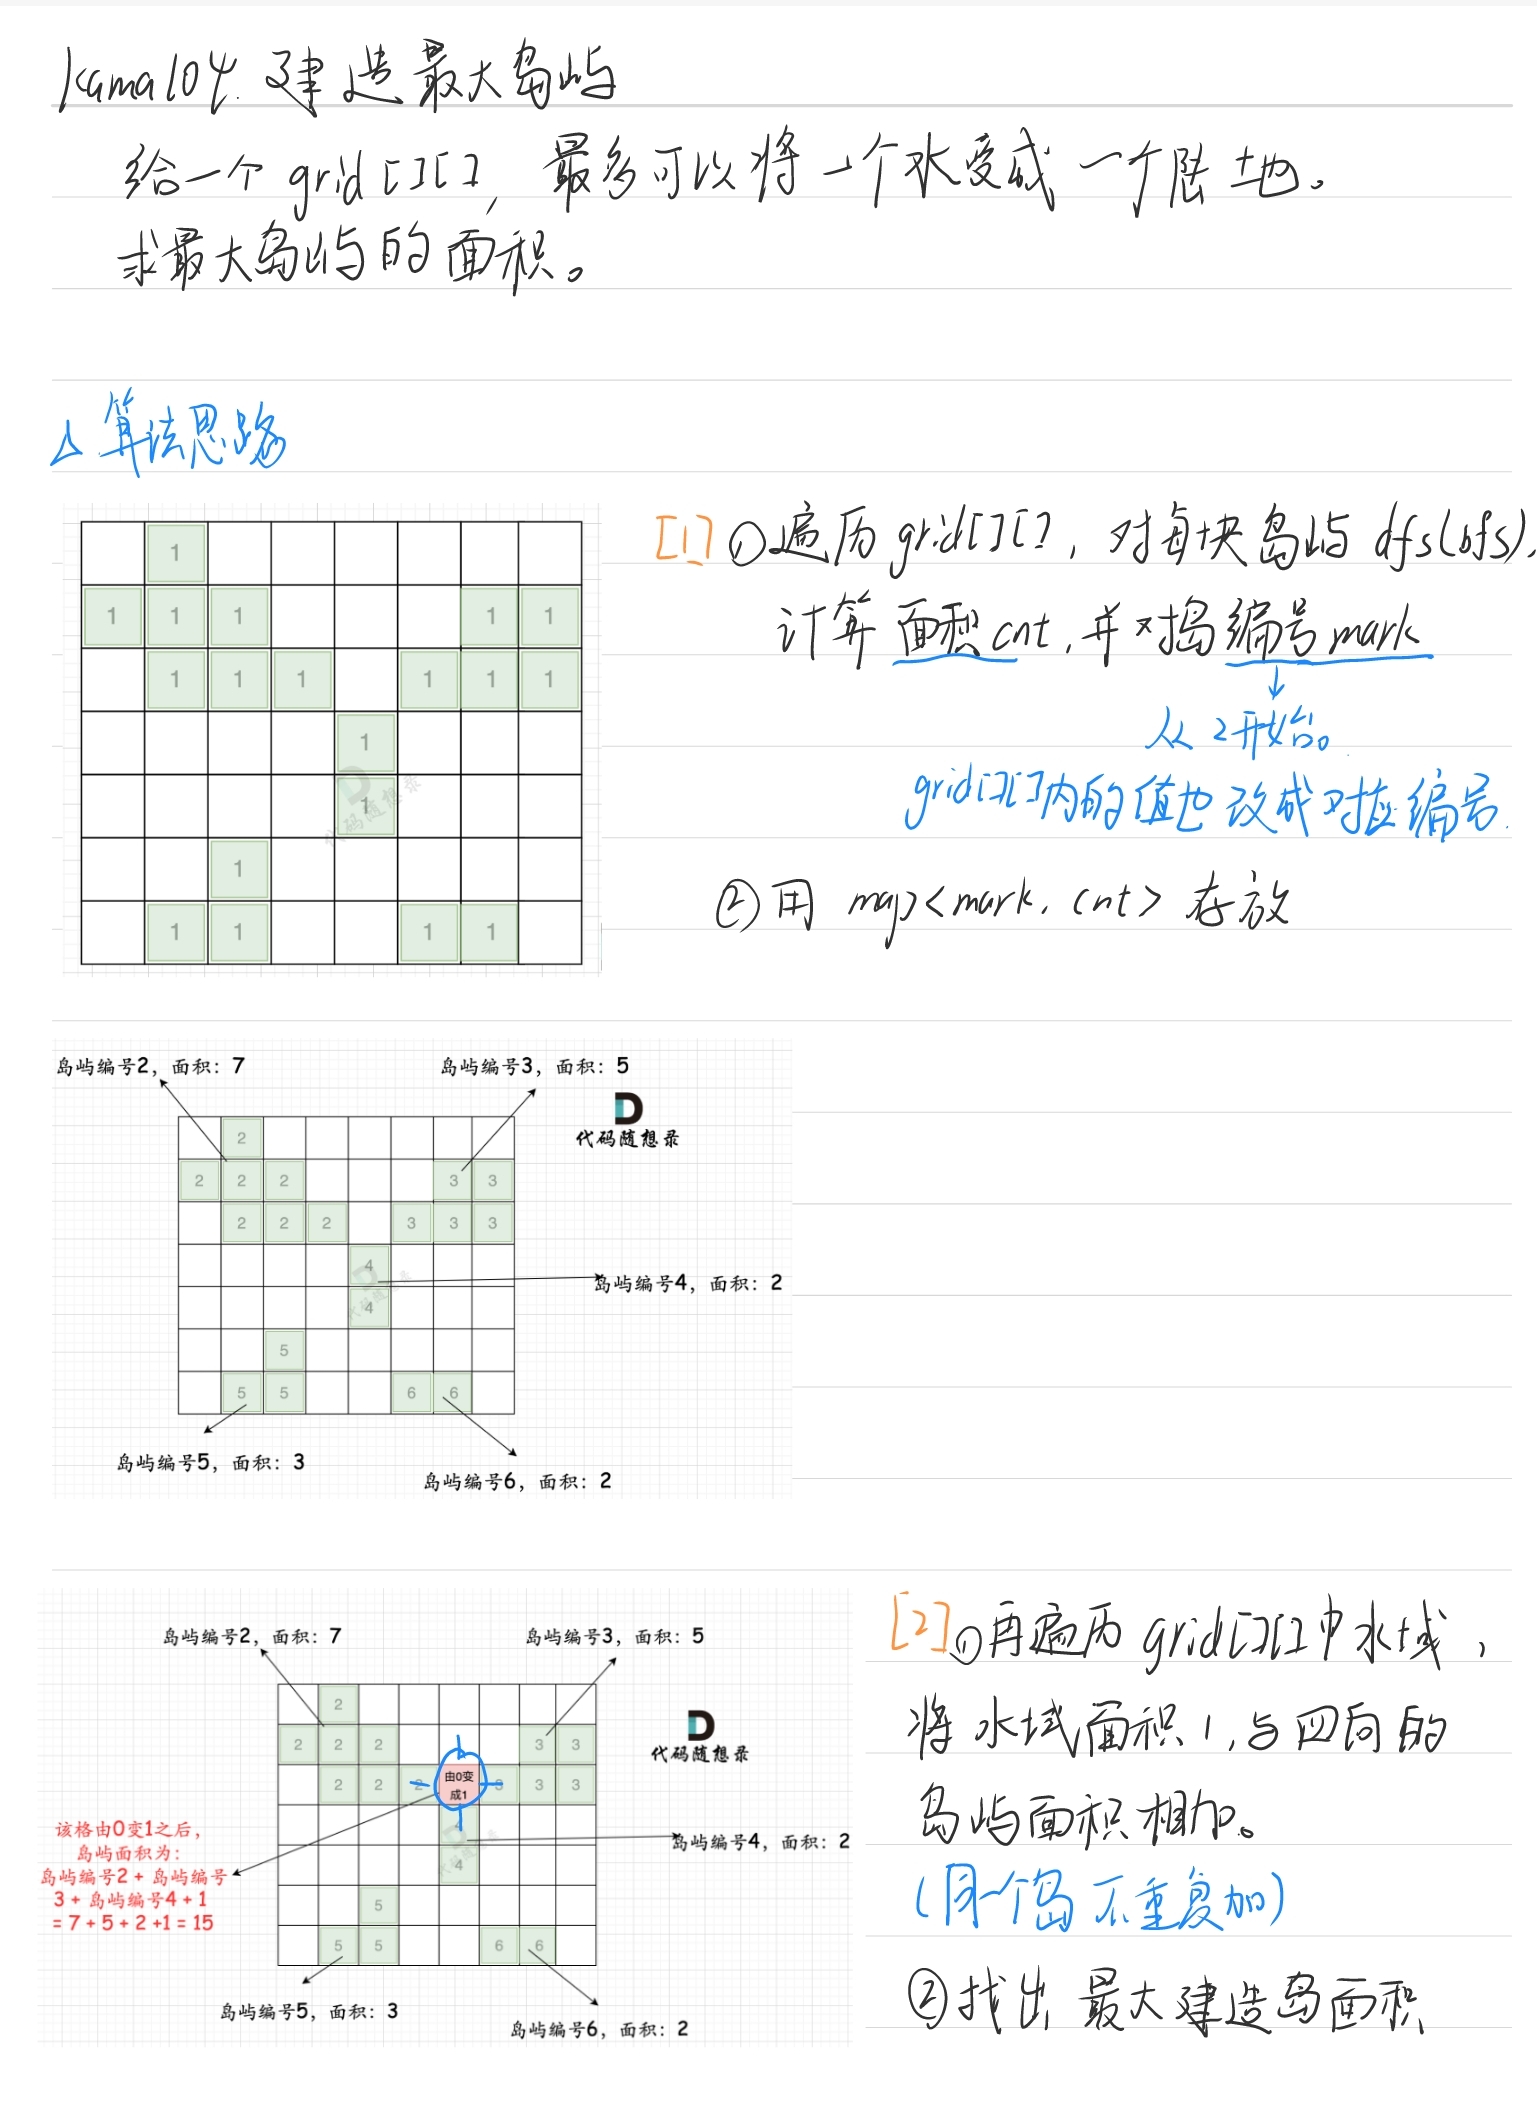 kama104. 建造最大岛屿
给一个 grid[][], 最多可以将一个水变成一个陆地。
求最大岛屿的面积。
△ 算法思路
1
1 1 1 1 1
1 1 1 1 1 1
1
1
代码随想录
1
1 1 1 1
[1] ①遍历 grid[][], 对每块岛屿 dfs(bfs),
计算面积 cnt, 并对岛编号 mark
↓
从 2 开始。
grid[][]内的值也改成对应编号.
② 用 map<mark, cnt> 存放
岛屿编号2，面积：7
岛屿编号3，面积：5
代码随想录
2
2 2 2 3 3
2 2 2 3 3 3
4
4
代码随想录
5
5 5 6 6
岛屿编号4，面积：2
岛屿编号5，面积：3
岛屿编号6，面积：2
岛屿编号2，面积：7
岛屿编号3，面积：5
代码随想录
2
2 2 2 3 3
2 2 2 由0变 3 3 3
成1
4
5
5 5 6 6
岛屿编号4，面积：2
该格由0变1之后，
岛屿面积为：
岛屿编号2 + 岛屿编号
3 + 岛屿编号4 + 1
= 7 + 5 + 2 +1 = 15
岛屿编号5，面积：3
岛屿编号6，面积：2
[2] ①再遍历 grid[][]中水域，
将水域面积1, 与四向的
岛屿面积相加。
(同一个岛不重复加)
②找出 最大建造岛面积